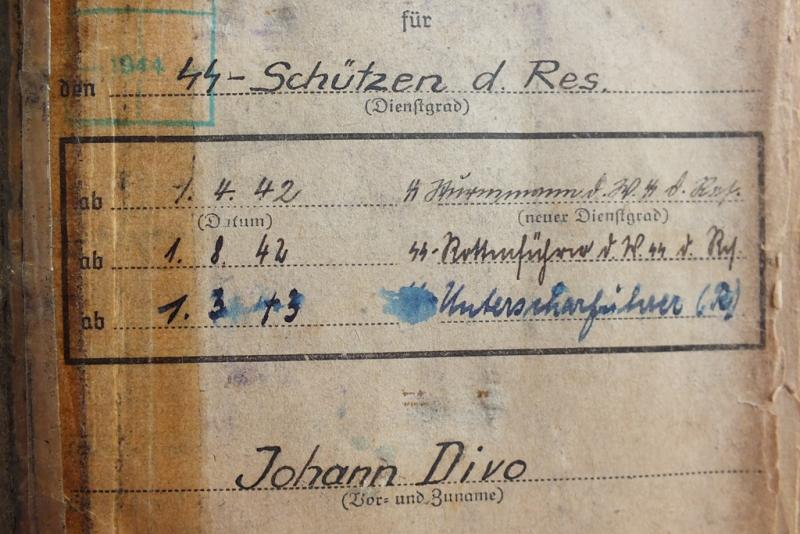 für
1944
den SS-Schützen d. Res.
(Dienstgrad)
ab 1. 4. 42 SS Sturmmann d. W. SS d. Res.
(Datum) (neuer Dienstgrad)
ab 1. 8. 42 SS-Rottenführer d W SS d. Res.
ab 1. 3 43 Unterscharführer (R)
Johann Divo
(Vor- und Zuname)